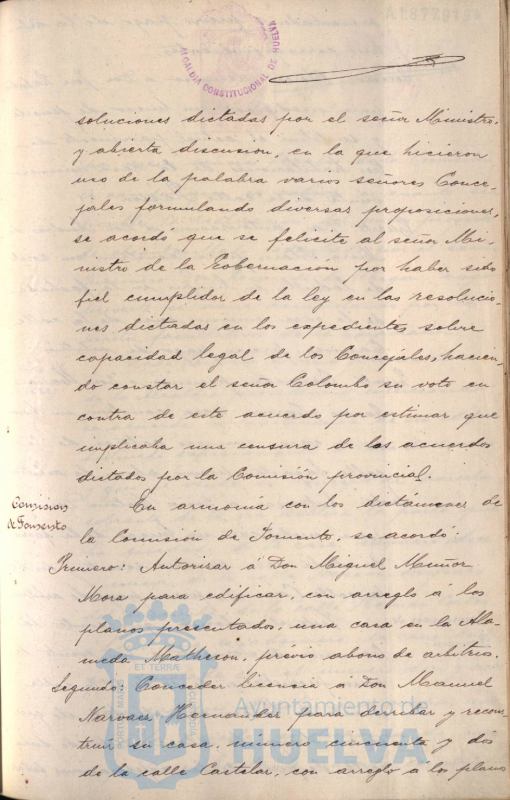 ALCALDÍA CONSTITUCIONAL DE HUELVA
soluciones dictadas por el señor Ministro,
y abierta discusion, en la que hicieron
uso de la palabra varios señores Conce-
jales formulando diversas proposiciones,
se acordó que se felicite al señor Mi-
nistro de la Gobernación por haber sido
fiel cumplidor de la ley en las resolucio-
nes dictadas en los expedientes sobre
capacidad legal de los Concejales, hacien-
do constar el señor Colombo su voto en
contra de este acuerdo por estimar que
implicaba una censura de los acuerdos
dictados por la Comisión provincial.
Comision
de Fomento
En armonía con los dictámenes de
la Comisión de Fomento, se acordó:
Primero: Autorizar á Don Miguel Muñoz
Mora para edificar, con arreglo á los
planos presentados, una casa en la Ala-
meda Matheson, prévio abono de arbitrios.
Segundo: Conceder licencia á Don Manuel
Narvaez Hernandez para derribar y recons-
truir su casa, número cincuenta y dos
de la calle Castelar, con arreglo á los planos
PORTUS MARIS ET TERRÆ
Ayuntamiento de
HUELVA